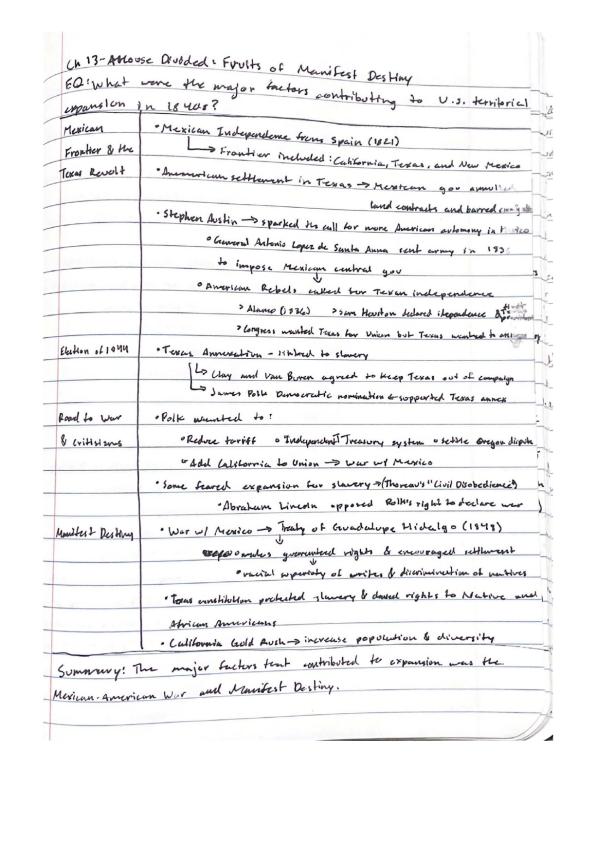 Ch 13 - A House Divided: Fruits of Manifest Destiny
EQ: What were the major factors contributing to U.S. territorial
expansion in 1840s?
Mexican
Frontier & the
Texas Revolt
• Mexican Independence from Spain (1821)
→ Frontier included: California, Texas, and New Mexico
• American settlement in Texas → Mexican gov annulled
land contracts and barred
• Stephen Austin → sparked its call for more American autonomy in Mexico
• General Antonio Lopez de Santa Anna sent army in 183
to impose Mexican central gov
↓
• American Rebels called for Texan independence
> Alamo (1836) > Sam Houston declared independence &
> Congress wanted Texas for Union but Texas wanted to
Election of 1844
• Texas Annexation - linked to slavery
→ Clay and Van Buren agreed to keep Texas out of campaign
→ James Polk Democratic nomination & supported Texas annex
Road to War
& Critisisms
• Polk wanted to:
• Reduce tariff • Independent Treasury system • settle Oregon dispute
• Add California to Union → War w/ Mexico
• Some feared expansion for slavery → (Thoreau's "Civil Disobedience")
• Abraham Lincoln opposed Polk's right to declare war
Manifest Destiny
• War w/ Mexico → Treaty of Guadalupe Hidalgo (1848)
↓
males guaranteed rights & encouraged settlement
↓
• racial superiority of whites & discrimination of natives
• Texas constitution protected slavery & denied rights to Native and
African Americans
• California Gold Rush → increase population & diversity
Summary: The major factors that contributed to expansion was the
Mexican-American War and Manifest Destiny.